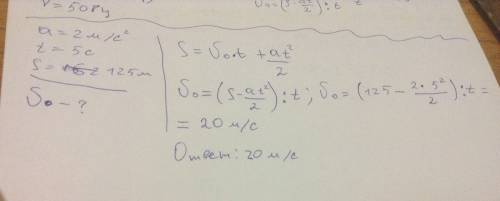 ν = 50 Гц
υ₀ = (S - at²/2) : t
a = 2 м/с²
t = 5 с
S = 125 м
υ₀ - ?
S = υ₀·t + at²/2
υ₀ = (S - at²/2) : t ; υ₀ = (125 - 2·5²/2) : t =
= 20 м/с
Ответ: 20 м/с